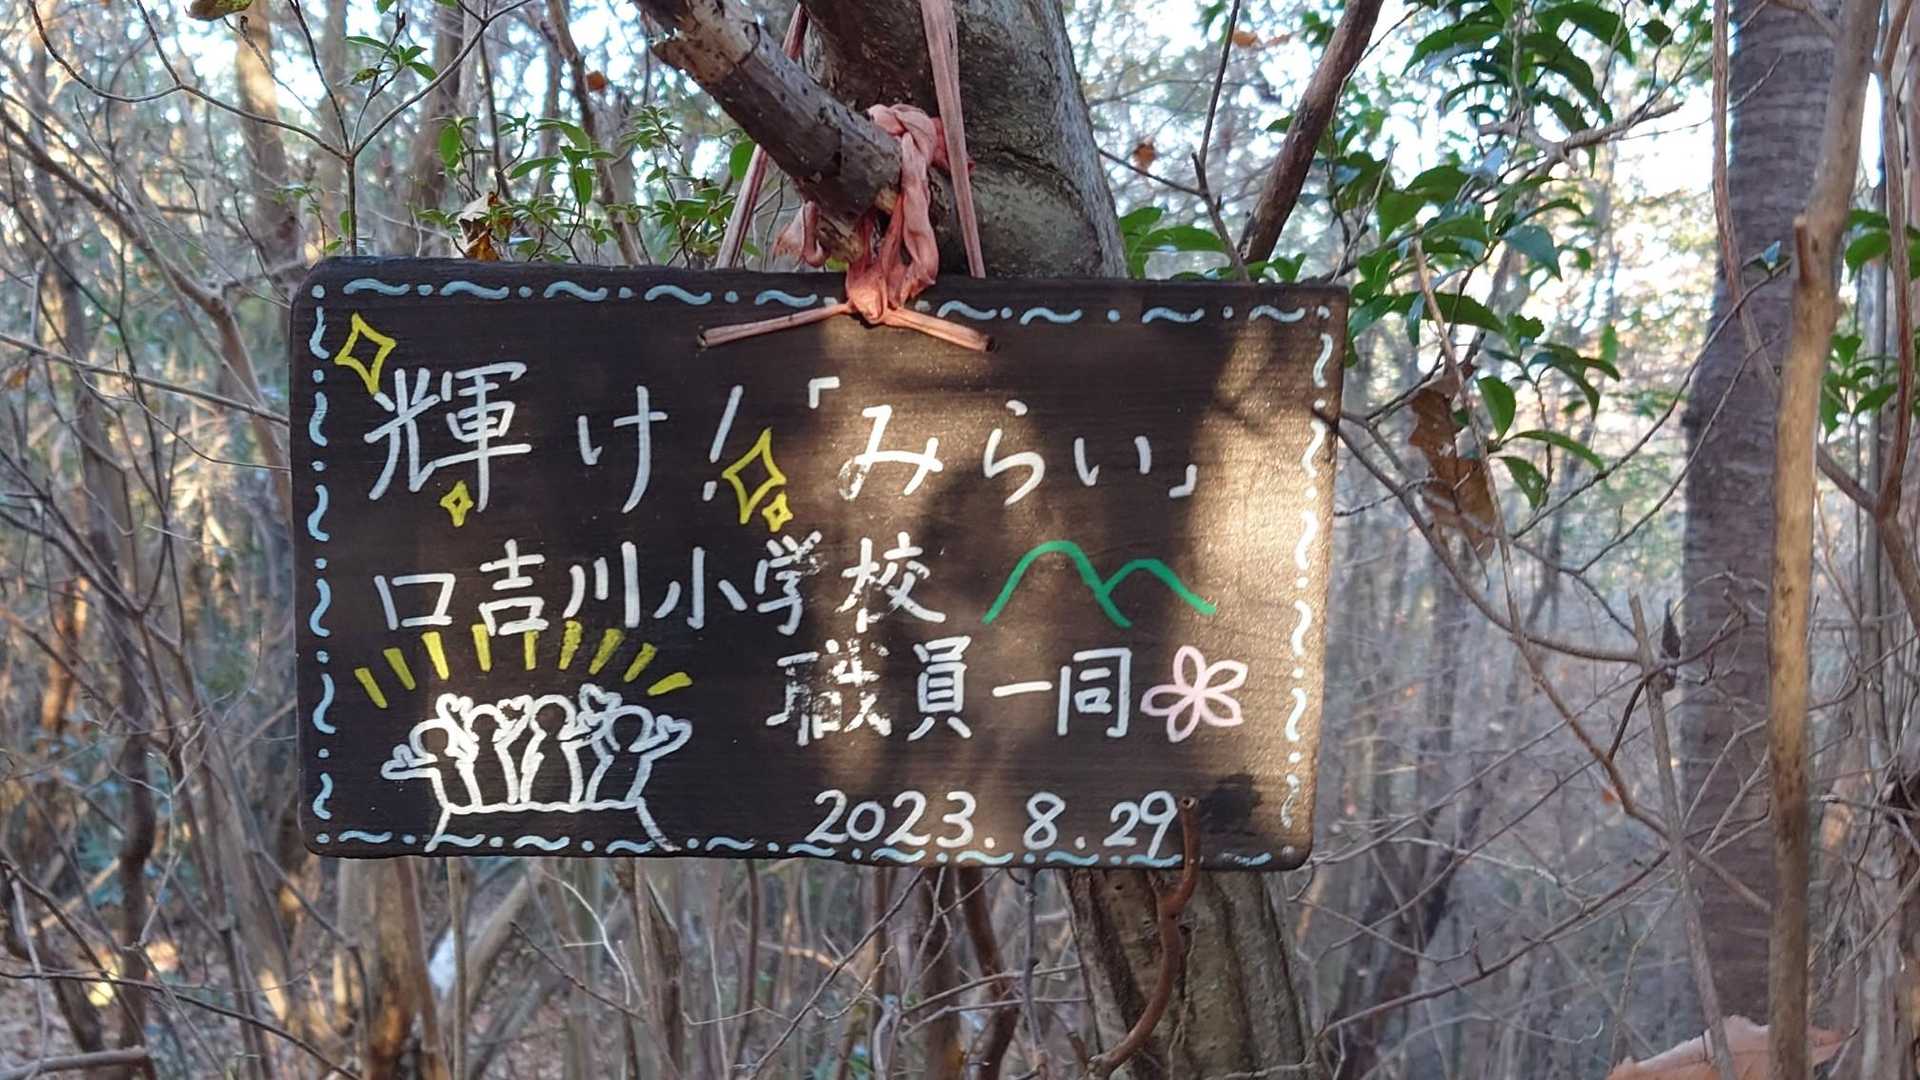 輝け!「みらい」
口吉川小学校
職員一同
2023.8.29